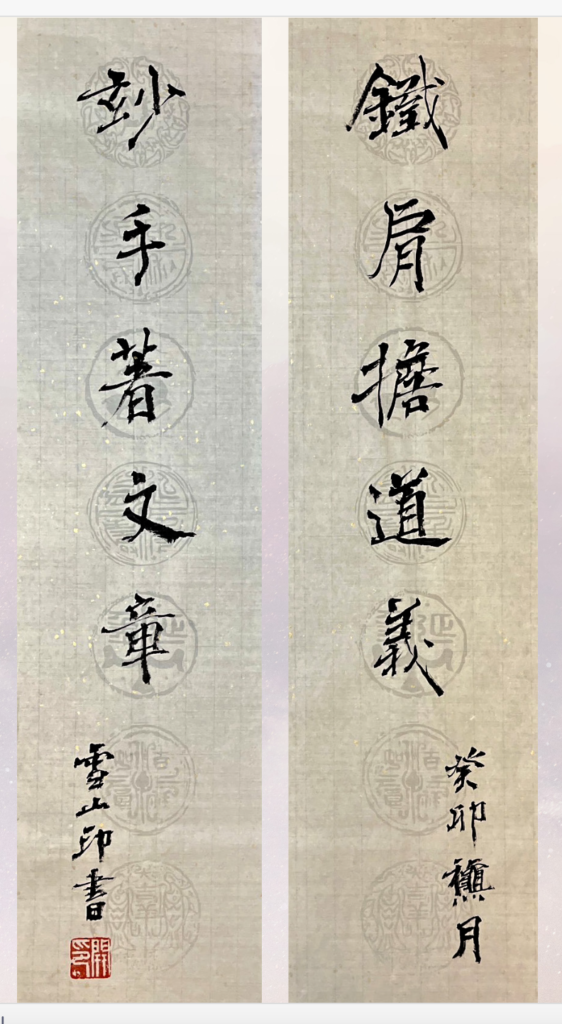 鐵肩擔道義
癸卯龝月
玅手著文章
雪山印書